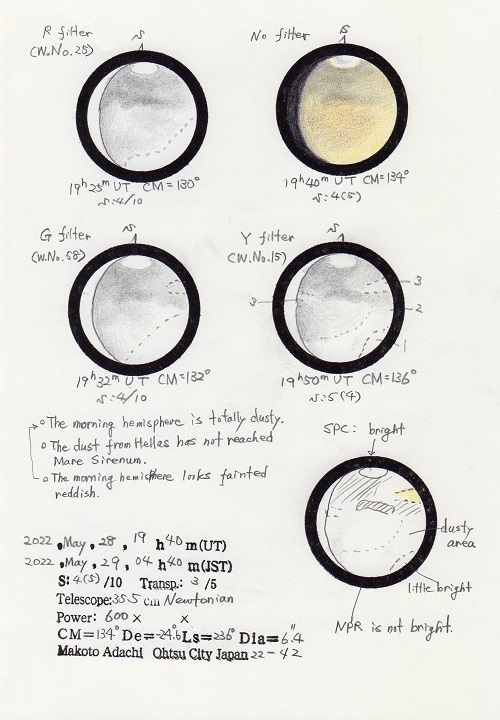 R filter
(W.No.25)
S
19h 25m UT CM=130°
S:4/10
No filter
S
19h 40m UT CM=134°
S:4(5)
G filter
(W.No.58)
S
19h 32m UT CM=132°
S:4/10
Y filter
(W.No.15)
S
3
3
2
1
19h 50m UT CM=136°
S:5(4)
The morning hemisphere is totally dusty.
The dust from Hellas has not reached
Mare Sirenum.
The morning hemisphere looks fainted
reddish.
SPC: bright
dusty
area
little bright
NPR is not bright.
2022 , May , 28 , 19 h 40 m (UT)
2022 , May , 29 , 04 h 40 m (JST)
S: 4(5) /10 Transp.: 3 /5
Telescope: 35.5 cm Newtonian
Power: 600 × ×
CM=134° De=-24.6 Ls=236° Dia=6.4"
Makoto Adachi Ohtsu City Japan 22-42